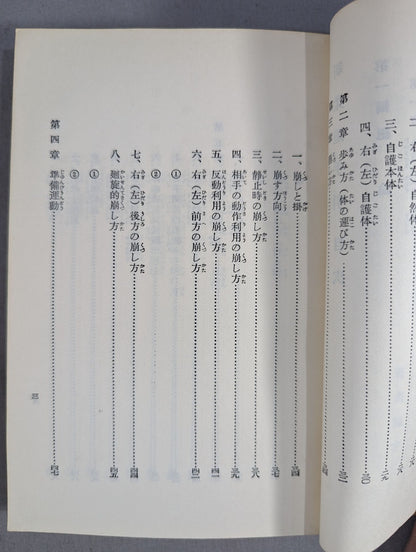 二、右(左)自然体
三、自護本体……二九
四、右(左)自護体……三〇
第二章 歩み方(体の運び方)……三二
第三章
一、崩しと掛……三四
二、崩す方向……三七
三、静止時の崩し方……三八
四、相手の動作利用の崩し方……三九
五、反動利用の崩し方……四一
六、右(左)前方の崩し方……四二
①
②
七、右(左)後方の崩し方……四四
八、廻旋的崩し方……四五
①
②
第四章 準備運動……四七